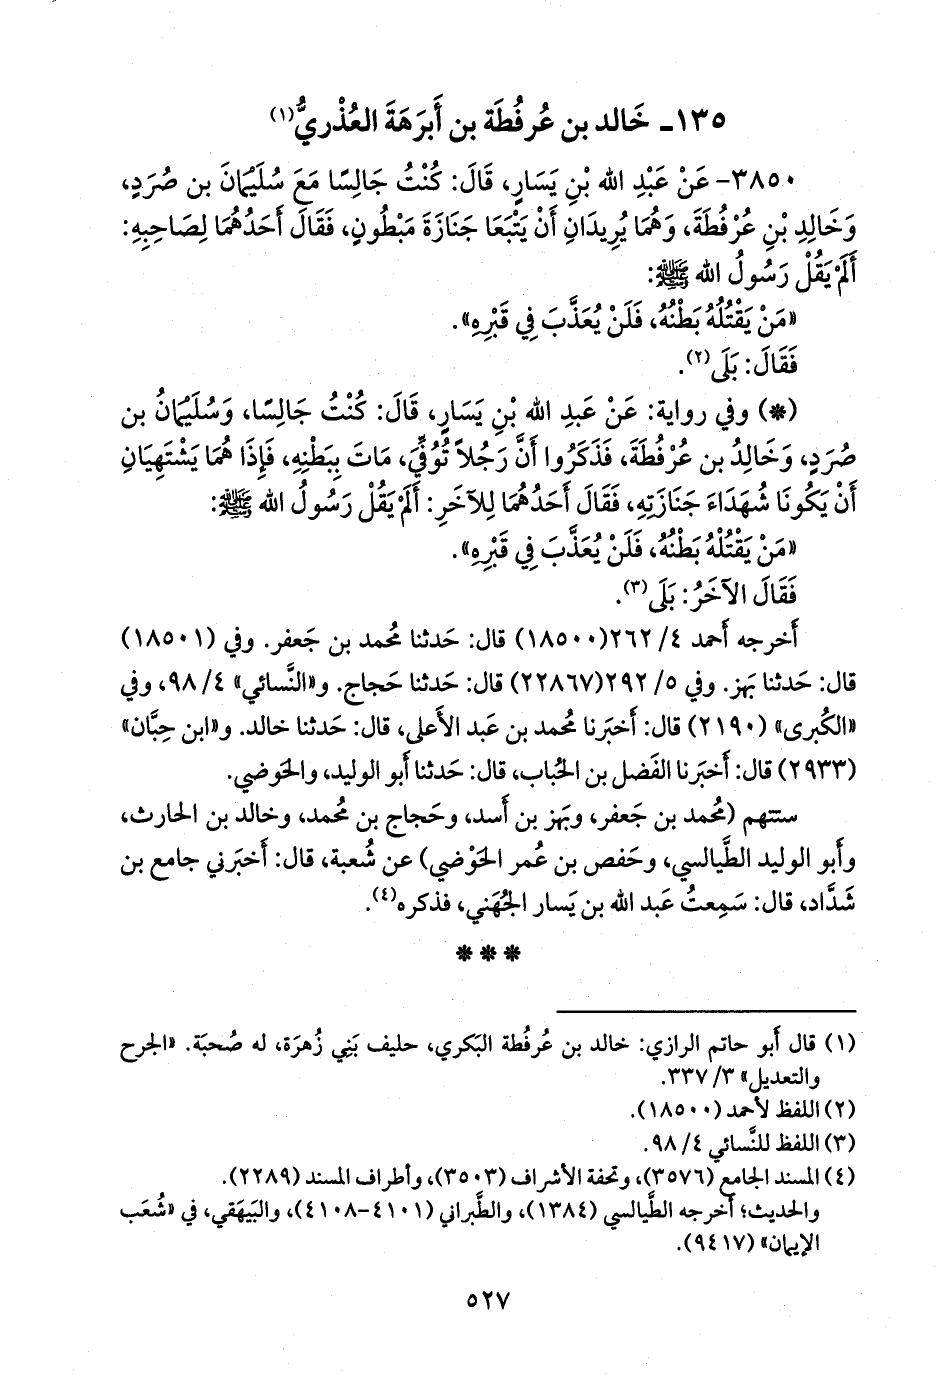 ١٣٥ـ خَالد بن عُرفُطَة بن أَبرَهَةَ العُذْريُّ(١)
٣٨٥٠- عَنْ عَبْدِ الله بْنِ يَسَارٍ، قَالَ: كُنْتُ جَالِسًا مَعَ سُلَيُمَانَ بن صُرَدٍ،
وَخَالِدِ بْنِ عُرْفُطَةَ، وَهُمَا يُرِيدَانِ أَنْ يَتْبَعَا جَنَازَةَ مَبْطُونٍ، فَقَالَ أَحَدُهُمَا لِصَاحِبِهِ:
أَلَمْ يَقُلْ رَسُولُ الله ﷺ:
«مَنْ يَقْتُلُهُ بَطْنُهُ، فَلَنْ يُعَذَّبَ فِي قَبْرِهِ».
فَقَالَ: بَلَى(٢).
(*) وفي رواية: عَنْ عَبدِ الله بْنِ يَسَارٍ، قَالَ: كُنْتُ جَالِسًا، وَسُلَيُمَانُ بن
صُرَدٍ، وَخَالِدُ بن عُرْفُطَةَ، فَذَكَرُوا أَنَّ رَجُلاً تُوُفِّيَ، مَاتَ بِبَطْنِهِ، فَإِذَا هُمَا يَشْتَهِيَانِ
أَنْ يَكُونَا شُهَدَاءَ جَنَازَتِهِ، فَقَالَ أَحَدُهُمَا لِلآخَرِ: أَلَمْ يَقُلْ رَسُولُ الله ﷺ:
«مَنْ يَقْتُلْهُ بَطْنُهُ، فَلَنْ يُعَذَّبَ فِي قَبْرِهِ».
فَقَالَ الآخَرُ: بَلَى(٣).
أَخرجه أَحمد ٤/ ٢٦٢(١٨٥٠٠) قال: حَدثنا مُحمد بن جَعفر. وفي (١٨٥٠١)
قال: حَدثنا بَهز. وفي ٥/ ٢٩٢(٢٢٨٦٧) قال: حَدثنا حَجاج. و«النَّسائي» ٤/ ٩٨، وفي
«الكُبرى» (٢١٩٠) قال: أَخبَرنا مُحمد بن عَبد الأَعلى، قال: حَدثنا خالد. و«ابن حِبَّان»
(٢٩٣٣) قال: أَخبَرنا الفَضل بن الحُباب، قال: حَدثنا أَبو الوليد، والحَوضي.
ستتهم (مُحمد بن جَعفر، وبَهز بن أَسد، وحَجاج بن مُحمد، وخالد بن الحارث،
وأَبو الوليد الطَّيالسي، وحَفص بن عُمر الحَوْضي) عن شُعبة، قال: أَخبَرني جامع بن
شَدَّاد، قال: سَمِعتُ عَبد الله بن يَسار الجُهَني، فذكره(٤).
* * *
(١) قال أَبو حاتم الرازي: خالد بن عُرفُطة البَكري، حليف بَنِي زُهرَة، له صُحبَة. «الجرح
والتعديل» ٣/ ٣٣٧.
(٢) اللفظ لأحمد (١٨٥٠٠).
(٣) اللفظ للنَّسائي ٤/ ٩٨.
(٤) المسند الجامع (٣٥٧٦)، وتحفة الأشراف (٣٥٠٣)، وأطراف المسند (٢٢٨٩).
والحديث؛ أخرجه الطَّيالسي (١٣٨٤)، والطَّبراني (٤١٠١-٤١٠٨)، والبَيهَقي، في «شُعَب
الإيمان» (٩٤١٧).
٥٢٧